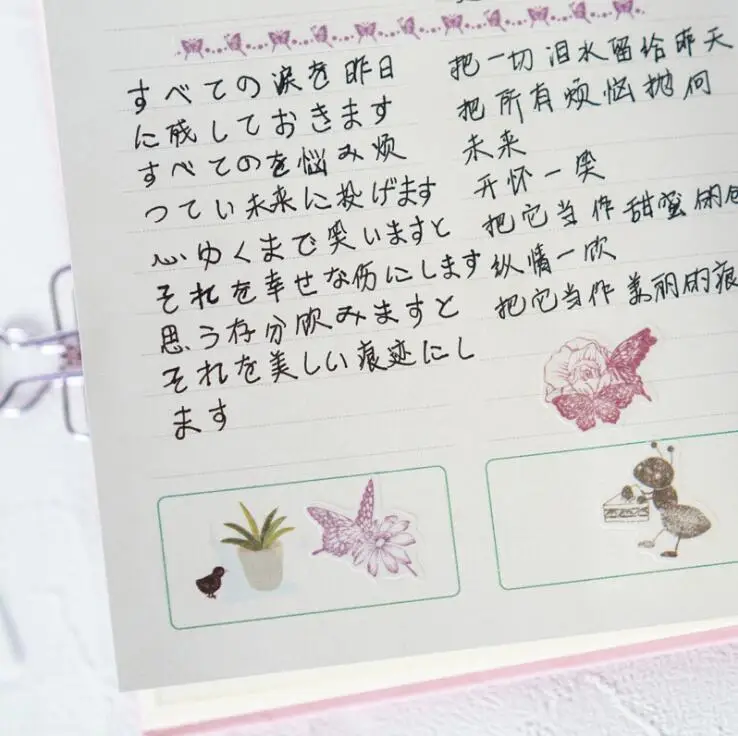 すべての涙を昨日
に残しておきます
すべてのを悩み烦
つてい未来に投げます
心ゆくまで笑いますと
それを幸せな伤にします
思う存分饮みますと
それを美しい痕迹にし
ます
把一切泪水留给昨天
把所有烦恼抛向
未来
开怀一笑
把它当作甜蜜的
纵情一饮
把它当作美丽的痕